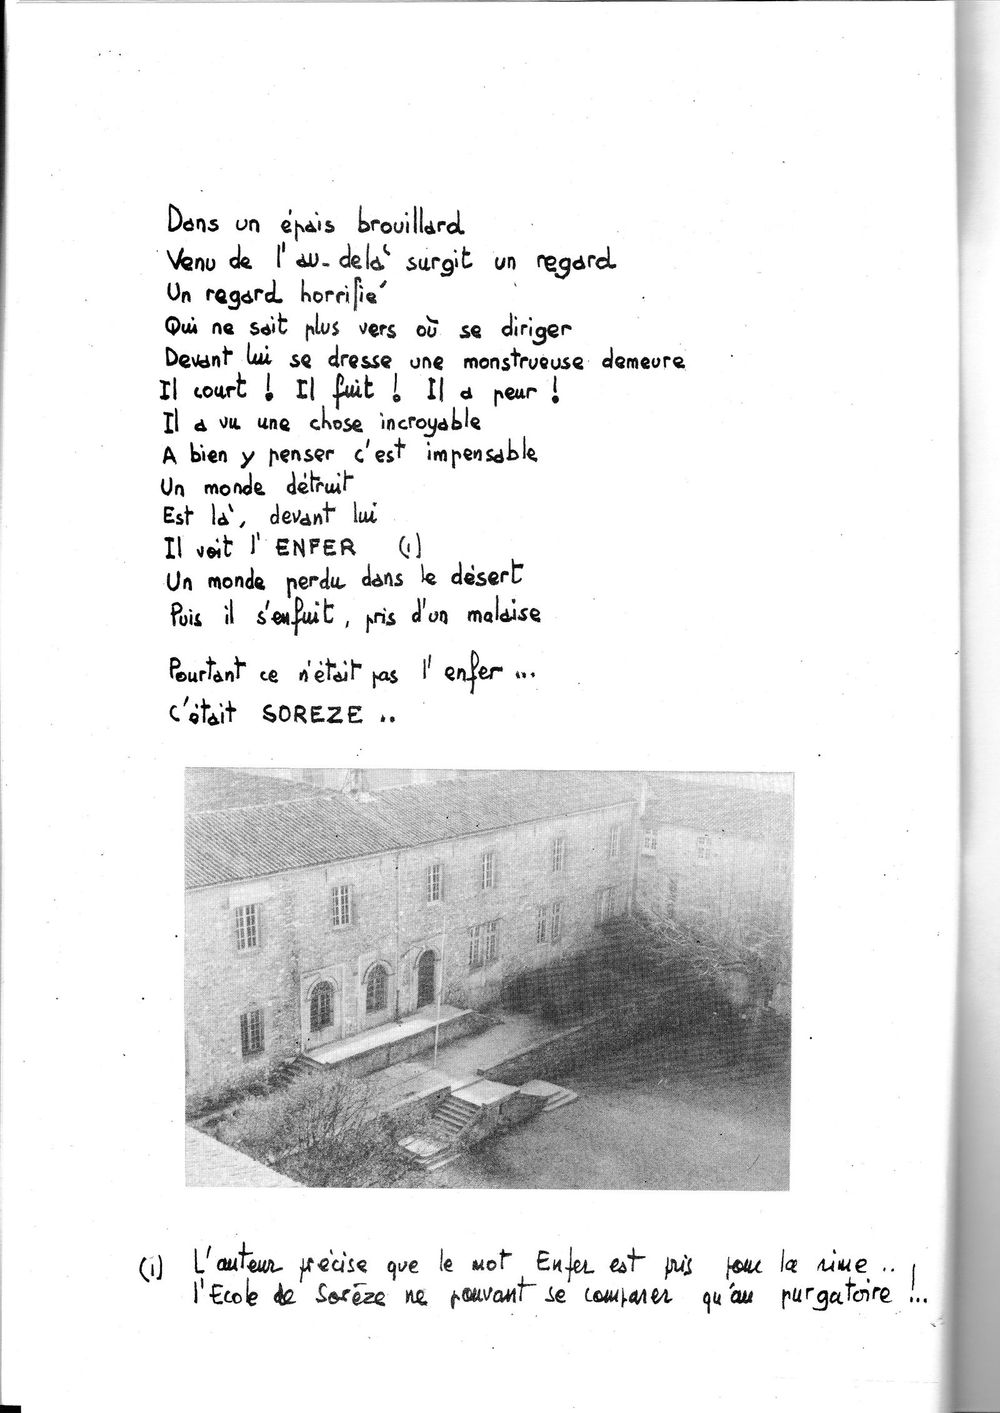 Dans un épais brouillard
Venu de l'au-delà surgit un regard
Un regard horrifié
Qui ne sait plus vers où se diriger
Devant lui se dresse une monstrueuse demeure
Il court ! Il fuit ! Il a peur !
Il a vu une chose incroyable
A bien y penser c'est impensable
Un monde détruit
Est là, devant lui
Il voit l'ENFER (1)
Un monde perdu dans le désert
Puis il s'enfuit, pris d'un malaise
Pourtant ce n'était pas l'enfer ...
C'était SOREZE ..
(1) L'auteur précise que le mot Enfer est pris pour la rime ..
l'Ecole de Sorèze ne pouvant se comparer qu'au purgatoire !...